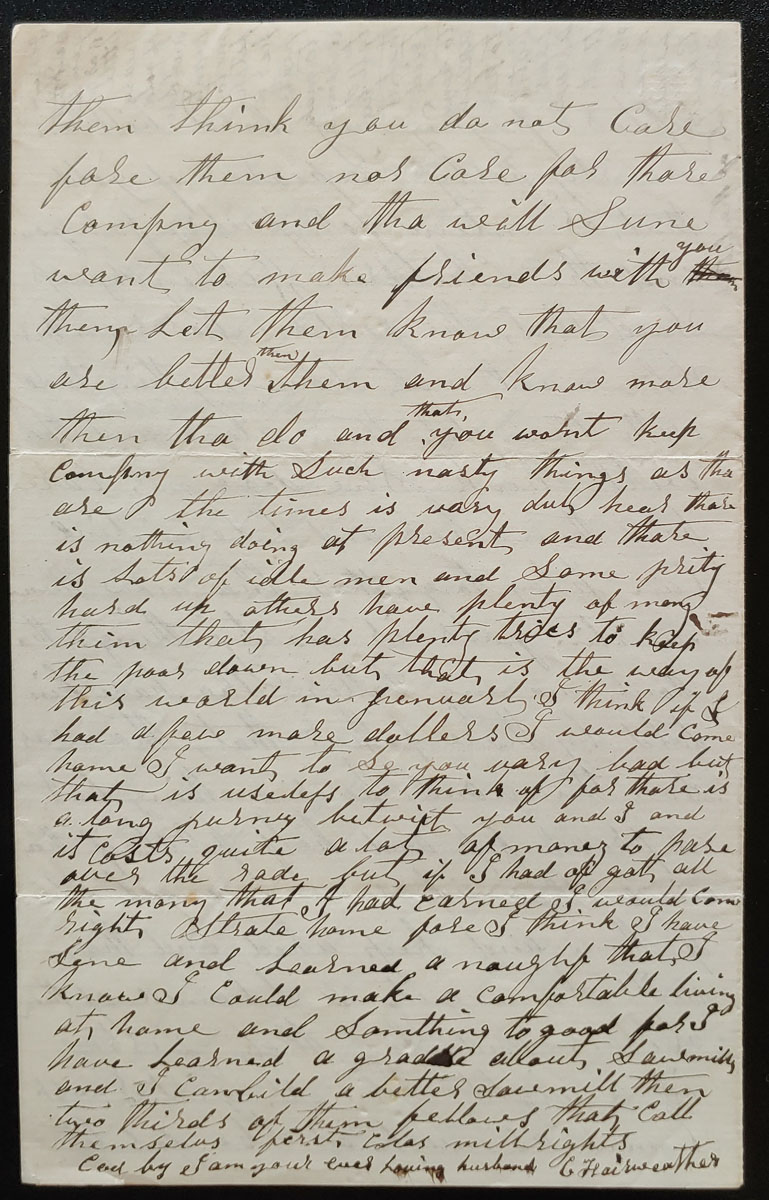 them think you do not Care
fore them nor Care for thare
Compny and tha will Sune
want to make friends with you
then Let them know that you
are better then them and know more
then tha do and that you wont keep
Compny with Such nasty things as tha
are the times is vary dul hear thare
is nothing doing at present and thare
is Lots of idle men and Some prity
hard up others have plenty of mony
them that has plenty tries to keep
the poor down but that is the way of
this world in I think if I
had a few more dollers I would Come
home I want to Se you vary bad but
that is useless to think of for thare is
a long jurney betwixt you and I and
it Costs quite a lot of money to pase
over the rode but if I had of got all
the mony that I had earned I would Come
right Strate home fore I think I have
Sene and Learned a nought that I
know I Could make a comfortable living
at home and Somthing to good for I
have Learned a grade about Sawmills
and I Can bild a better Sawmill then
two thirds of them fellows that Call
themselvs first Clas millrights
by I am your ever Loving husband C Hairweather